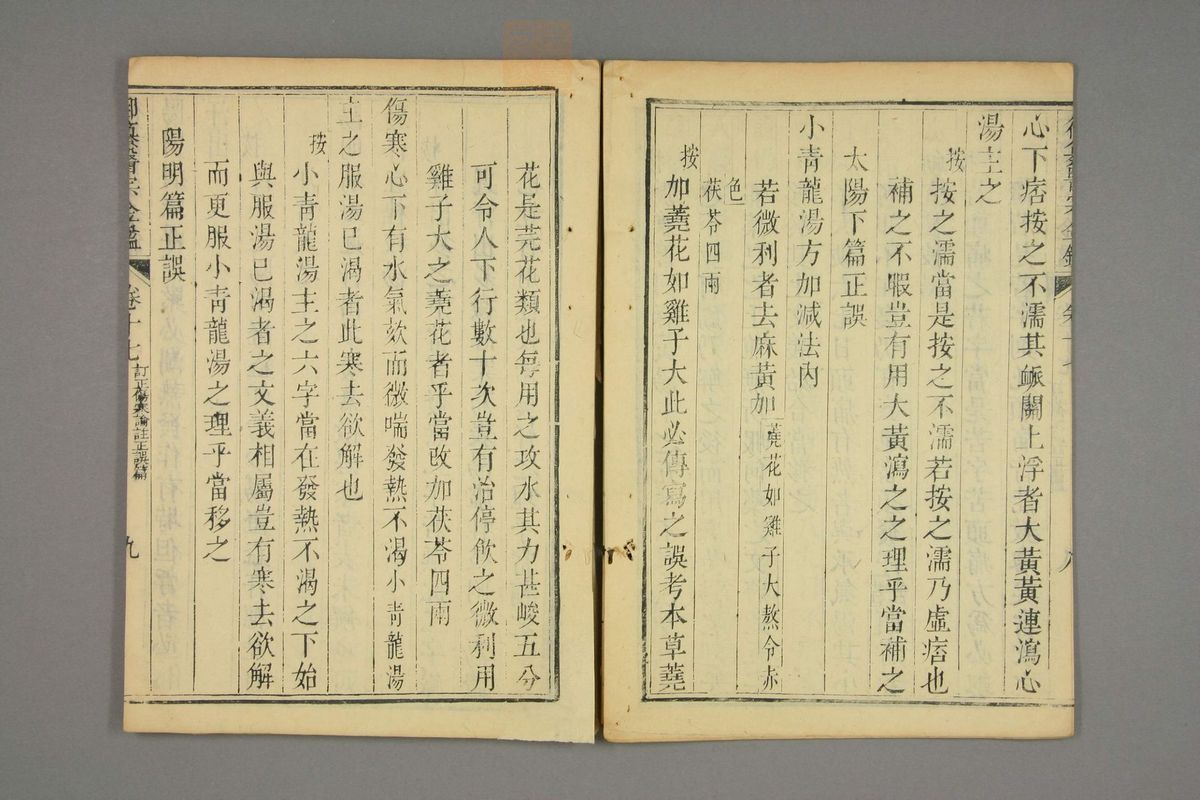 心下痞按之不濡其脈關上浮者大黃黃連瀉心
湯主之
按 按之濡當是按之不濡若按之濡乃虛痞也
補之不暇豈有用大黃瀉之之理乎當補之
太陽下篇正誤
小青龍湯方加減法內
若微利者去麻黃加蕘花如雞子大熬令赤
色
茯苓四兩
按 加蕘花如雞子大此必傳寫之誤考本草蕘
花是芫花類也每用之攻水其力甚峻五分
可令人下行數十次豈有治停飲之微利用
雞子大之蕘花者乎當改加茯苓四兩
傷寒心下有水氣欬而微喘發熱不渴小青龍湯
主之服湯已渴者此寒去欲解也
按 小青龍湯主之六字當在發熱不渴之下始
與服湯已渴者之文義相屬豈有寒去欲解
而更服小青龍湯之理乎當移之
陽明篇正誤
御纂醫宗金鑑 卷十七 訂正傷寒論註正誤篇 九